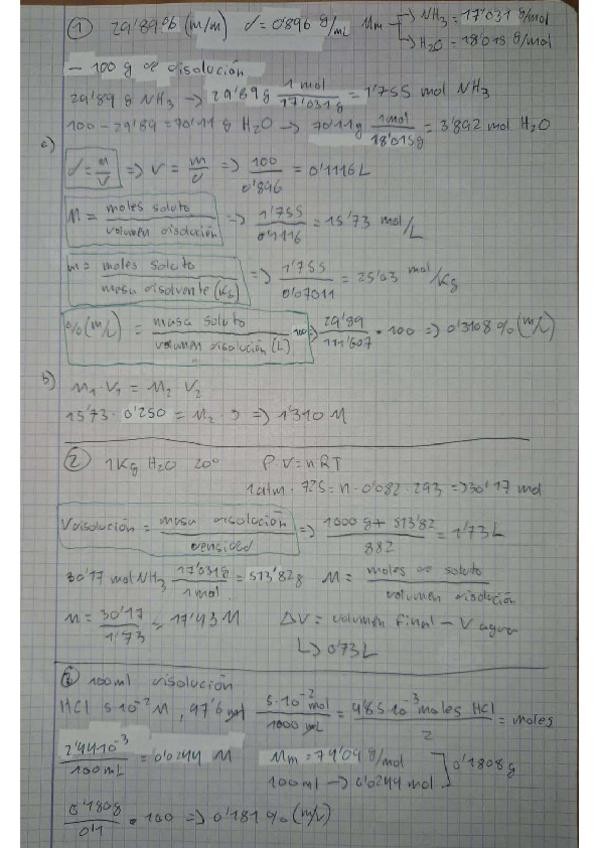 ① 29'89% (m/m) d = 0'896 g/mL Mm → NH3 = 17'031 g/mol
→ H2O = 18'015 g/mol
- 100 g de disolución
29'89 g NH3 → 29'89 g 1 mol / 17'031 g = 1'755 mol NH3
100 - 29'89 = 70'11 g H2O → 70'11 g 1 mol / 18'015 g = 3'892 mol H2O
a)
d = m / V => V = m / d => 100 / 0'896 = 0'1116 L
M = moles soluto / volumen disolución => 1'755 / 0'1116 = 15'73 mol/L
m = moles soluto / masa disolvente (Kg) => 1'755 / 0'07011 = 25'03 mol/Kg
%(m/v) = masa soluto / volumen disolución (L) 100 => 29'89 / 111'607 · 100 => 0'3108 % (m/v)
b) M1 · V1 = M2 · V2
15'73 · 0'250 = M2 · 3 => 1'310 M
② 1 Kg H2O 20° P · V = nRT
1 atm · 725 = n · 0'082 · 293 => 30'17 mol
Vdisolución = masa disolución / densidad => 1000 g + 513'82 / 882 = 1'73 L
30'17 mol NH3 17'031 g / 1 mol = 513'82 g M = moles de soluto / volumen disolución
M = 30'17 / 1'73 = 17'43 M ΔV = volumen final - V agua
↳ 0'73 L
③ 100 ml disolución
HCl 5·10⁻² M, 97'6 ml 5·10⁻² mol / 1000 mL = 4'85·10⁻³ moles HCl / 2 = moles
2'44·10⁻³ / 100 mL = 0'0244 M Mm = 74'09 g/mol
100 ml → 0'0244 mol ] 0'1808 g
0'1808 / 0'1 · 100 => 0'181 % (m/v)